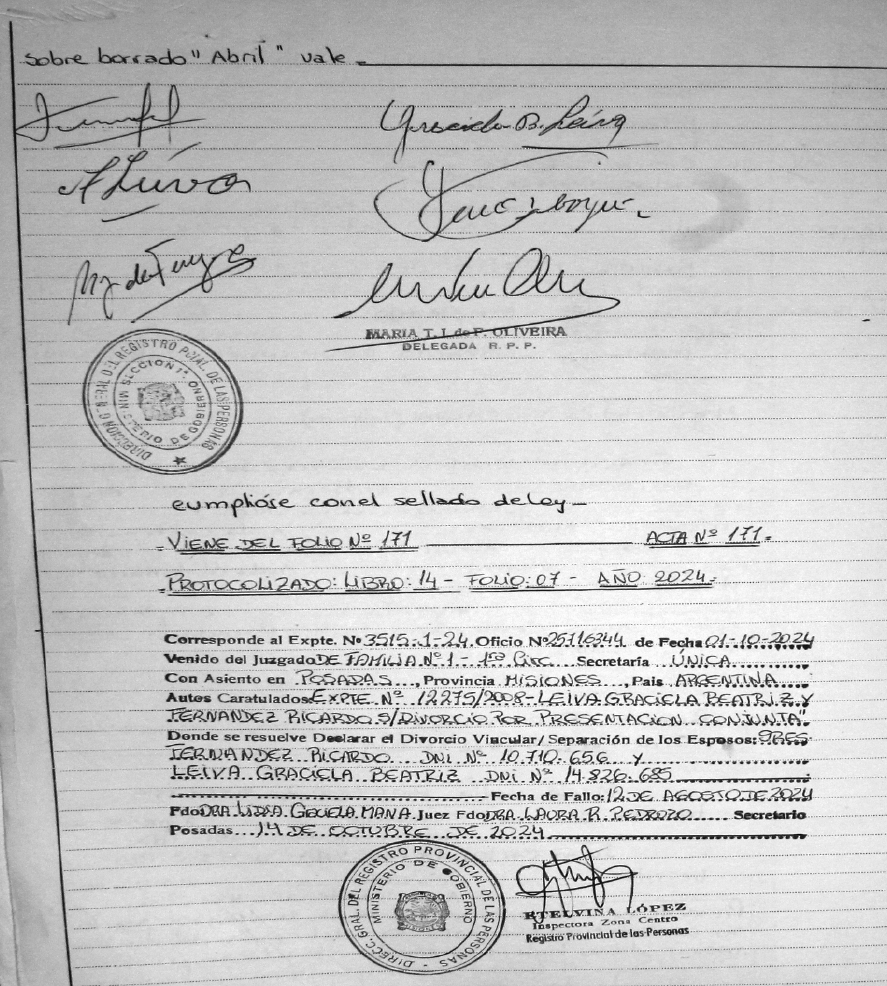 Sobre borrado "Abril" vale.
Graciela B. Leiva
MARIA T. I. de P. OLIVEIRA
DELEGADA R. P. P.
DIRECCION GENERAL DEL REGISTRO PCIAL. DE LAS PERSONAS
MINISTERIO DE GOBIERNO
SECCION 1ª
cumplióse con el sellado de ley
VIENE DEL FOLIO Nº 171 ACTA Nº 171.
PROTOCOLIZADO: LIBRO: 14 - FOLIO: 07 - AÑO 2024.
Corresponde al Expte. Nº 3515-1-24 Oficio Nº 25116344 de Fecha 01-10-2024
Venido del Juzgado DE FAMILIA Nº 1 - 1ra Circ. Secretaría ÚNICA
Con Asiento en POSADAS, Provincia MISIONES, Pais ARGENTINA
Autos Caratulados EXPTE Nº 12275/2008 - LEIVA GRACIELA BEATRIZ Y
FERNANDEZ RICARDO S/DIVORCIO POR PRESENTACION CONJUNTA"
Donde se resuelve Declarar el Divorcio Vincular/Separación de los Esposos: SRES
FERNANDEZ RICARDO DNI Nº 10.710.656 Y
LEIVA GRACIELA BEATRIZ DNI Nº 14.826.685
Fecha de Fallo: 12 DE AGOSTO DE 2024
Fdo DRA. Juez Fdo DRA. LAURA R. PEDROZO Secretario
Posadas 14 DE OCTUBRE DE 2024
DIRECC. GRAL. DEL REGISTRO PROVINCIAL DE LAS PERSONAS
MINISTERIO DE GOBIERNO
ETELVINA LÓPEZ
Inspectora Zona Centro
Registro Provincial de las Personas